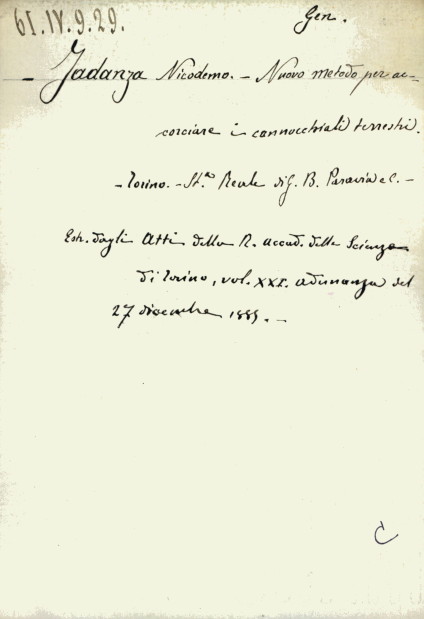 61.IV.9.29.
Gen.
— Jadanza Nicodemo. — Nuovo metodo per ac-
corciare i cannocchiali terrestri.
— Torino. — St.ª Reale di G. B. Paravia e C. —
Estr. dagli Atti della R. Accad. delle Scienze
di Torino, vol. XXI. adunanza del
27 dicembre 1885. —
C